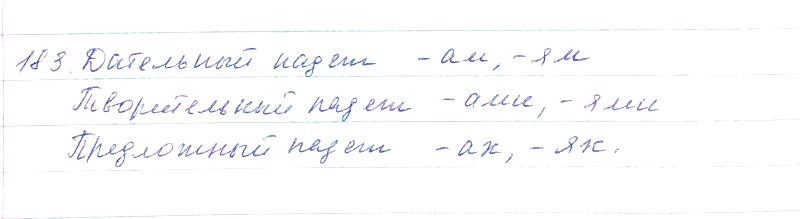 183. Дательный падеж -ам, -ям
Творительный падеж -ами, -ями
Предложный падеж -ах, -ях.